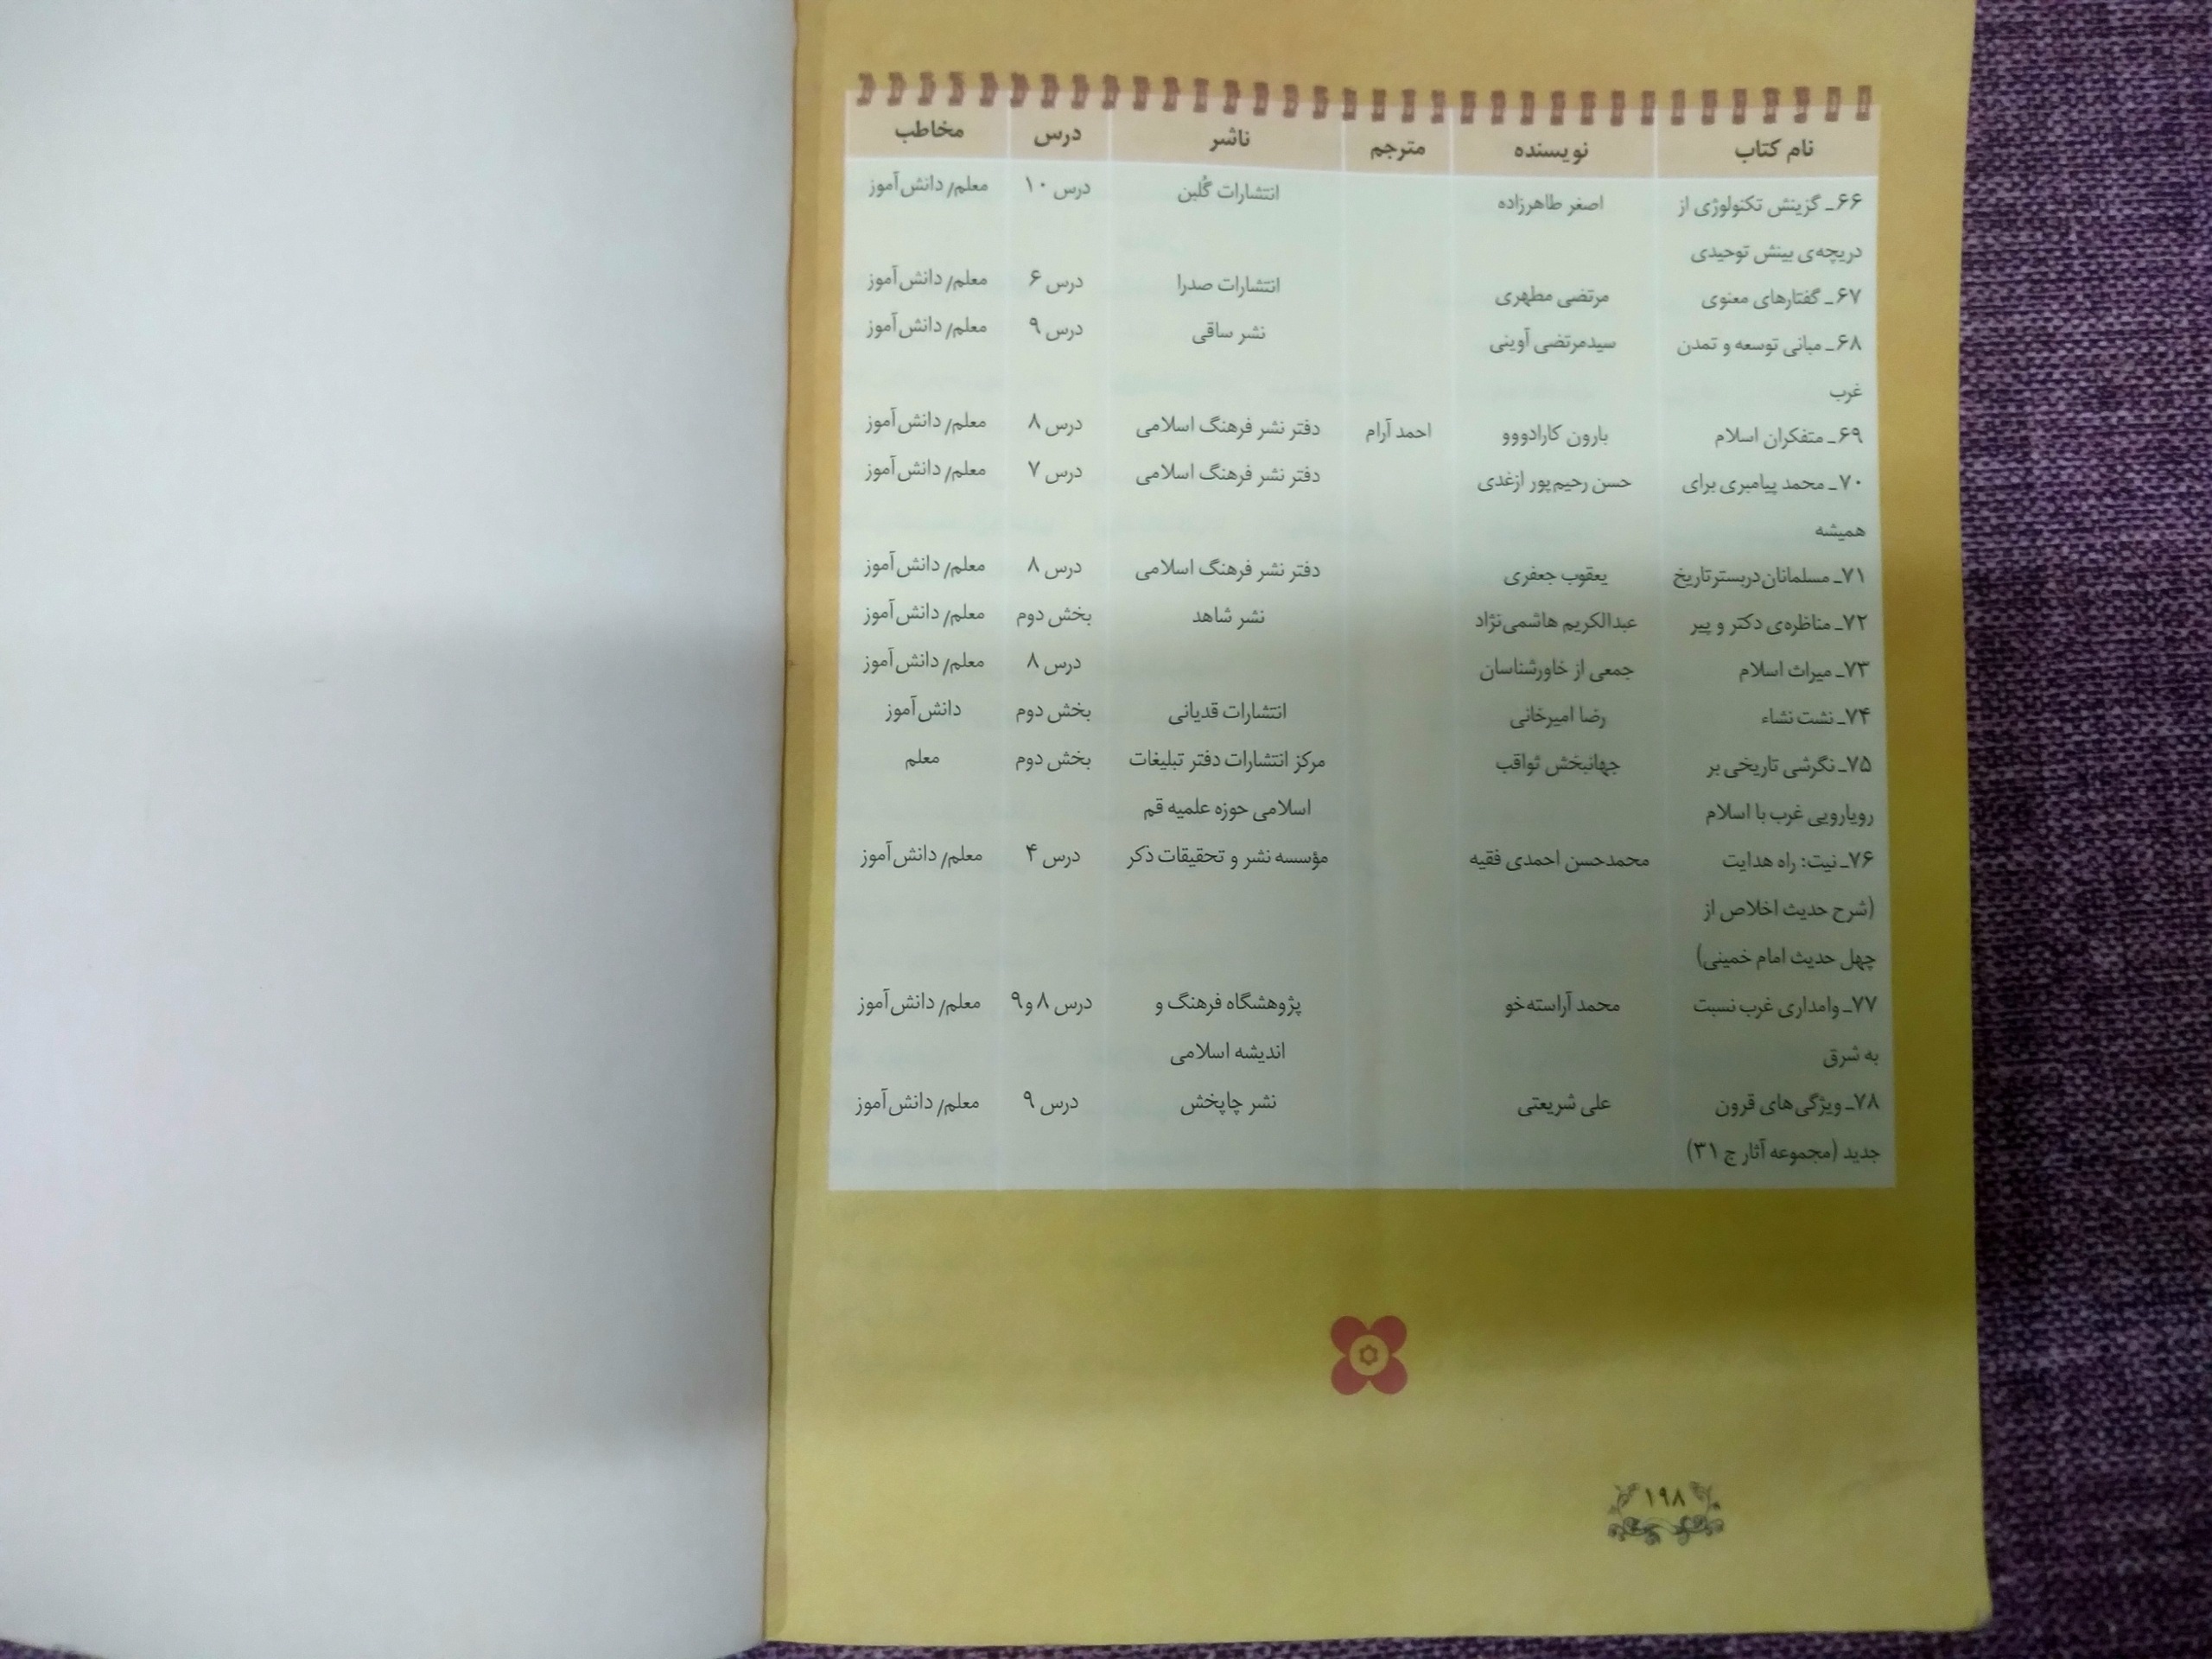 نام کتاب نویسنده مترجم ناشر درس مخاطب
۶۶ـ گزینش تکنولوژی از اصغر طاهرزاده انتشارات گلبن درس ۱۰ معلم/ دانش‌آموز
دریچه‌ی بینش توحیدی
۶۷ـ گفتارهای معنوی مرتضی مطهری انتشارات صدرا درس ۶ معلم/ دانش‌آموز
۶۸ـ مبانی توسعه و تمدن سیدمرتضی آوینی نشر ساقی درس ۹ معلم/ دانش‌آموز
غرب
۶۹ـ متفکران اسلام بارون کارادووو احمد آرام دفتر نشر فرهنگ اسلامی درس ۸ معلم/ دانش‌آموز
۷۰ـ محمد پیامبری برای حسن رحیم‌پور ازغدی دفتر نشر فرهنگ اسلامی درس ۷ معلم/ دانش‌آموز
همیشه
۷۱ـ مسلمانان در بستر تاریخ یعقوب جعفری دفتر نشر فرهنگ اسلامی درس ۸ معلم/ دانش‌آموز
۷۲ـ مناظره‌ی دکتر و پیر عبدالکریم هاشمی‌نژاد نشر شاهد بخش دوم معلم/ دانش‌آموز
۷۳ـ میراث اسلام جمعی از خاورشناسان درس ۸ معلم/ دانش‌آموز
۷۴ـ نشت نشاء رضا امیرخانی انتشارات قدیانی بخش دوم دانش‌آموز
۷۵ـ نگرشی تاریخی بر جهانبخش ثواقب مرکز انتشارات دفتر تبلیغات بخش دوم معلم
رویارویی غرب با اسلام اسلامی حوزه علمیه قم
۷۶ـ نیت: راه هدایت محمدحسن احمدی فقیه مؤسسه نشر و تحقیقات ذکر درس ۴ معلم/ دانش‌آموز
(شرح حدیث اخلاص از
چهل حدیث امام خمینی)
۷۷ـ وامداری غرب نسبت محمد آراسته‌خو پژوهشگاه فرهنگ و درس ۸ و ۹ معلم/ دانش‌آموز
به شرق اندیشه اسلامی
۷۸ـ ویژگی‌های قرون علی شریعتی نشر چاپخش درس ۹ معلم/ دانش‌آموز
جدید (مجموعه آثار ج ۳۱)
۱۹۸